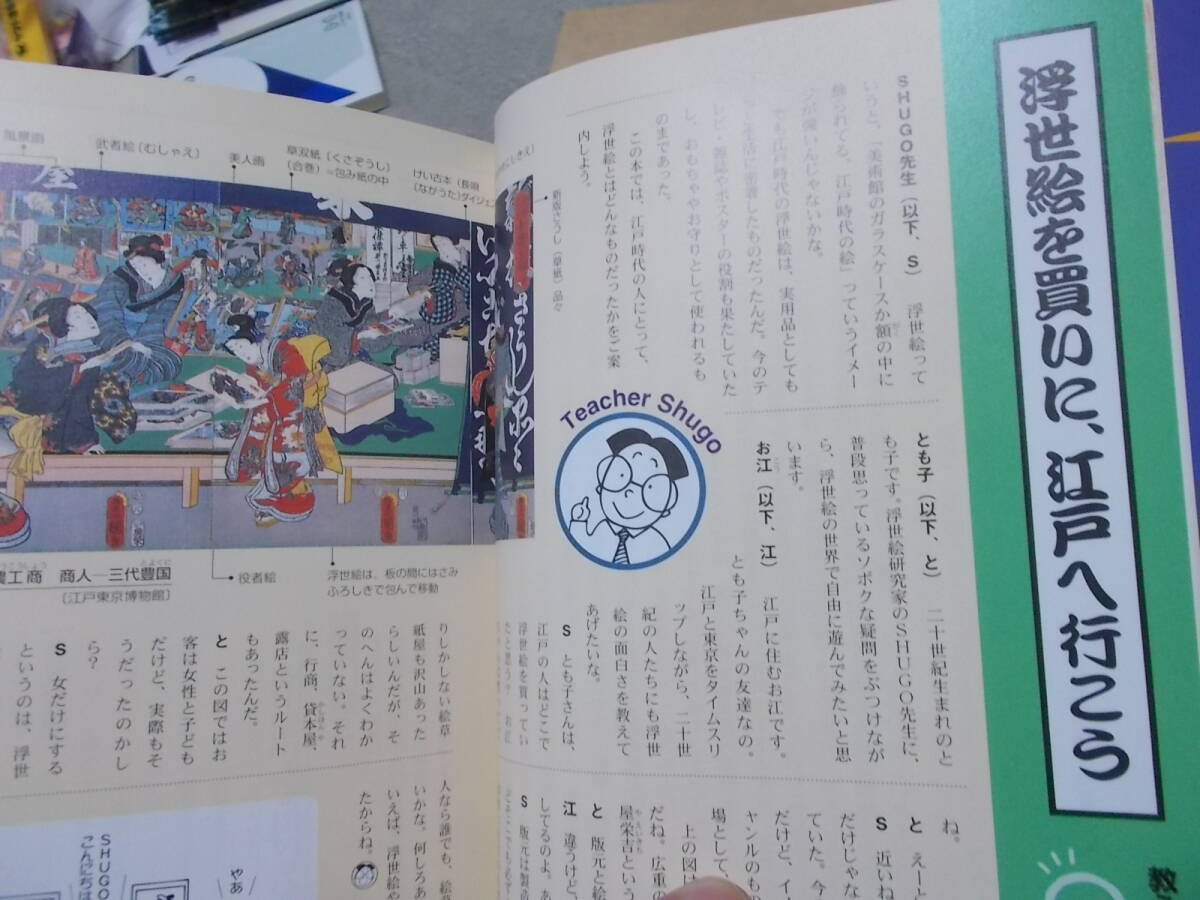 浮世絵を買いに、江戸へ行こう
SHUGO先生(以下、S) 浮世絵って
いうと、「美術館のガラスケースか額の中に
飾られてる、江戸時代の絵」っていうイメー
ジが強いんじゃないかな。
でも江戸時代の浮世絵は、実用品としても
生活に密着したものだったんだ。今のテ
レビ・雑誌やポスターの役割も果たしていた
し、おもちゃやお守りとして使われるも
のまであった。
この本では、江戸時代の人にとって、
浮世絵とはどんなものだったかをご案
内しよう。
Teacher Shugo
とも子(以下、と) 二十世紀生まれのと
も子です。浮世絵研究家のSHUGO先生に、
普段思っているソボクな疑問をぶつけなが
ら、浮世絵の世界で自由に遊んでみたいと思
います。
お江(以下、江) 江戸に住むお江です。
とも子ちゃんの友達なの。
江戸と東京をタイムスリ
ップしながら、二十世
紀の人たちにも浮世
絵の面白さを教えて
あげたいな。
S とも子さんは、
江戸の人はどこで
浮世絵を買ってい
たと思う?
ね。
と えーと
S 近いね
だけじゃな
ていた。今
だけど、イ
ャンルのも
場として、
上の図は
だね。広重の
屋栄吉という
と 版元と絵
江 違うけど、
してるのよ。あ
S 版元は製造
新版ぞうし(草紙)品々
風景画
武者絵(むしゃえ)
美人画
草双紙(くさぞうし)
(合巻)=包み紙の中
けい古本(長唄
(ながうた)ダイジェ
役者絵
浮世絵は、板の間にはさみ
ふろしきで包んで移動
農工商 商人―三代豊国
[江戸東京博物館]
りしかしない絵草
紙屋も沢山あった
らしいんだが、そ
のへんはよくわか
っていない。それ
に、行商、貸本屋、
露店というルート
もあったんだ。
と この図ではお
客は女性と子ども
だけど、実際もそ
うだったのかし
ら?
S 女だけにする
というのは、浮世
人なら誰でも、絵草
いかな。何しろあ
いえば、浮世絵や
たからね。
SHUGO
こんにちは
やあ
教